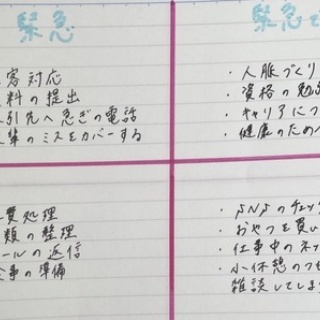 緊急
緊急で
客対応
料の提出
引先へ急ぎの電話
輩のミスをカバーする
・人脈づくり
・資格の勉
・キャリアにつ
・健康のため
処理
類の整理
ールの返信
事の準備
・SNSのチェッ
・おやつを買い
・仕事中のネッ
・小休憩のつも
雑談してしま